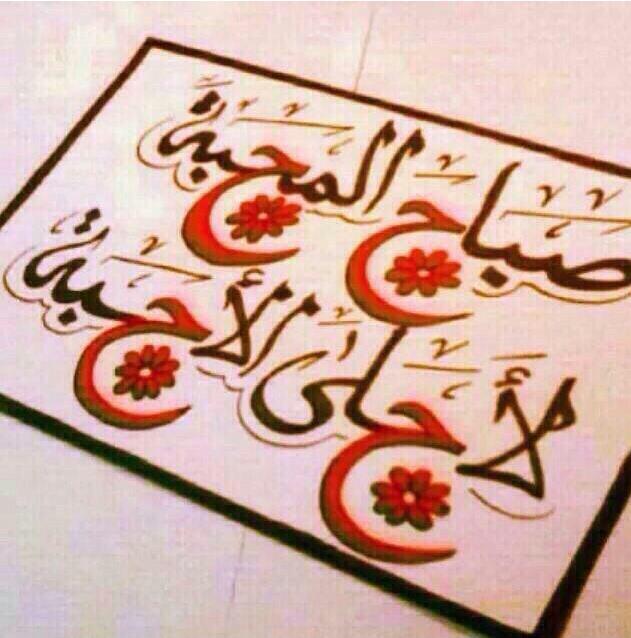 صباح المحبة
لأحلى الأحبة